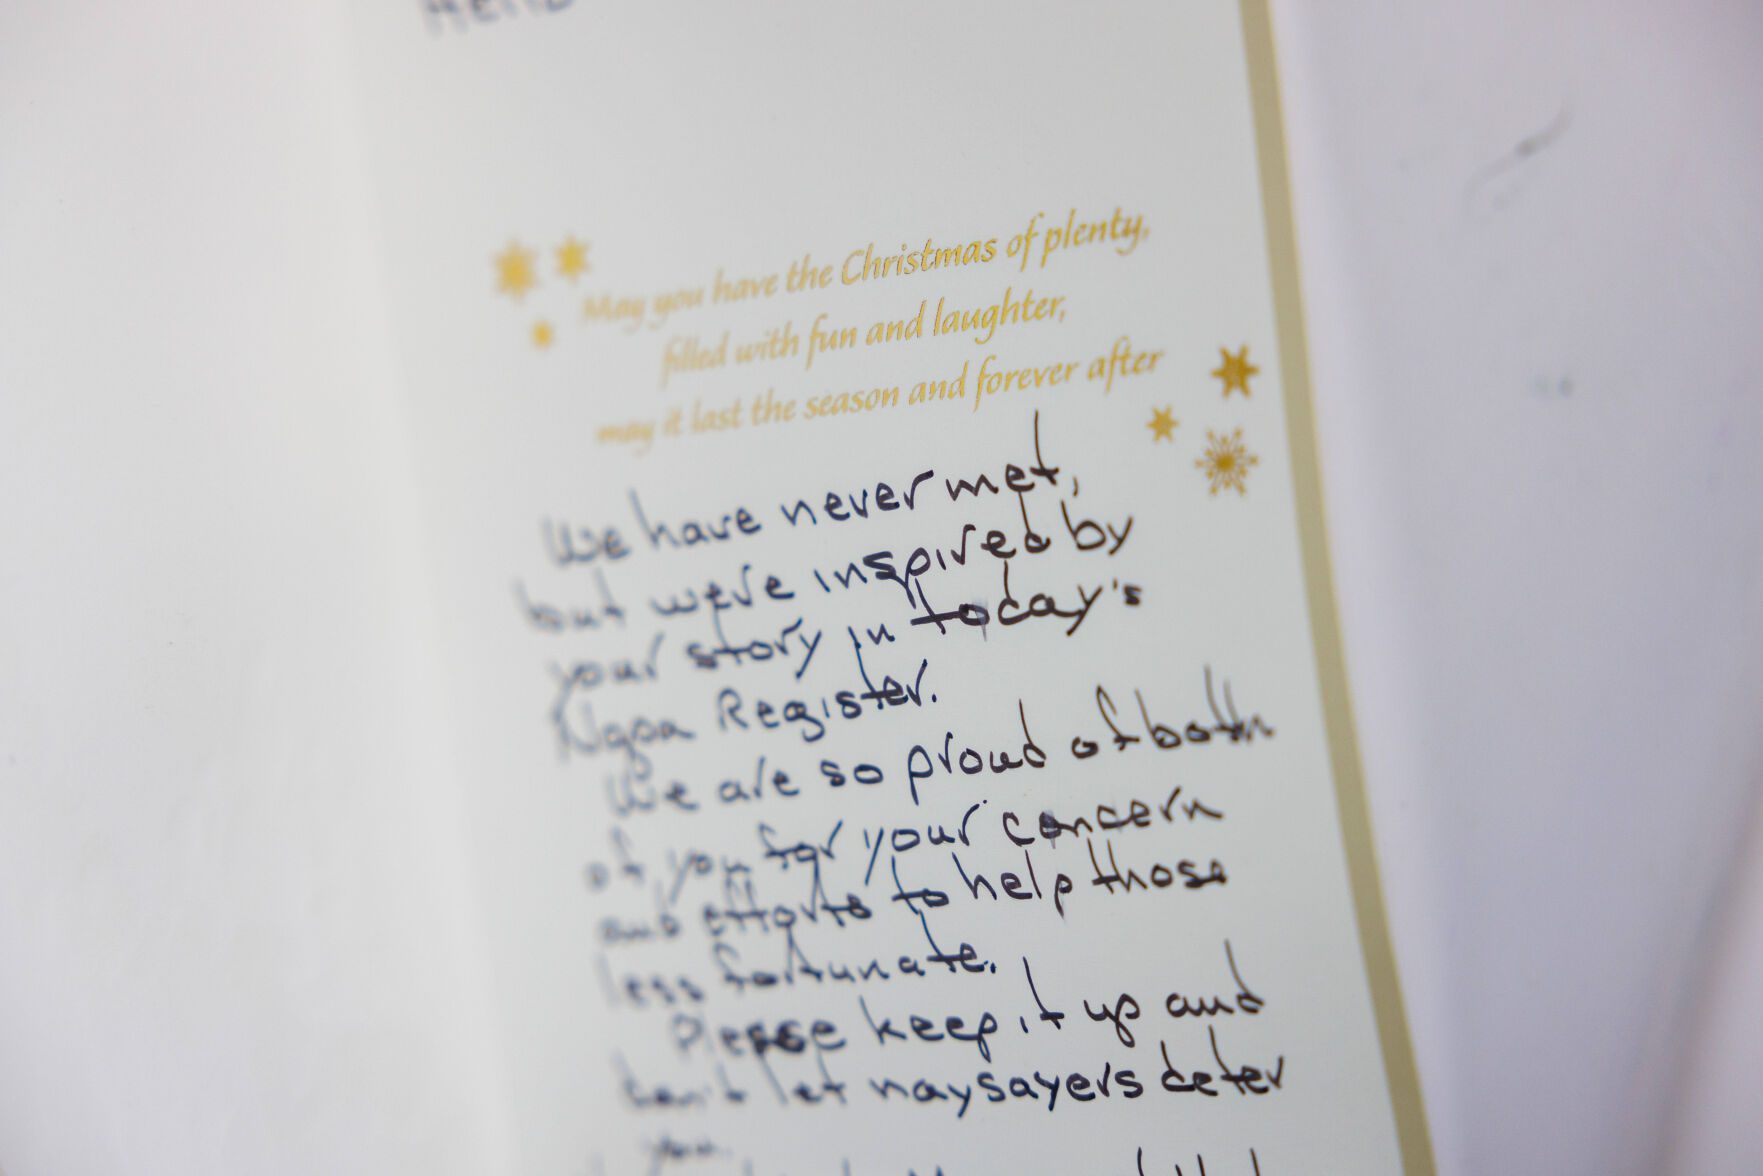 Hello
May you have the Christmas of plenty,
filled with fun and laughter,
may it last the season and forever after
We have never met,
but were inspired by
your story in today's
Napa Register.
We are so proud of both
of you for your concern
and efforts to help those
less fortunate.
Please keep it up and
don't let naysayers deter
you.